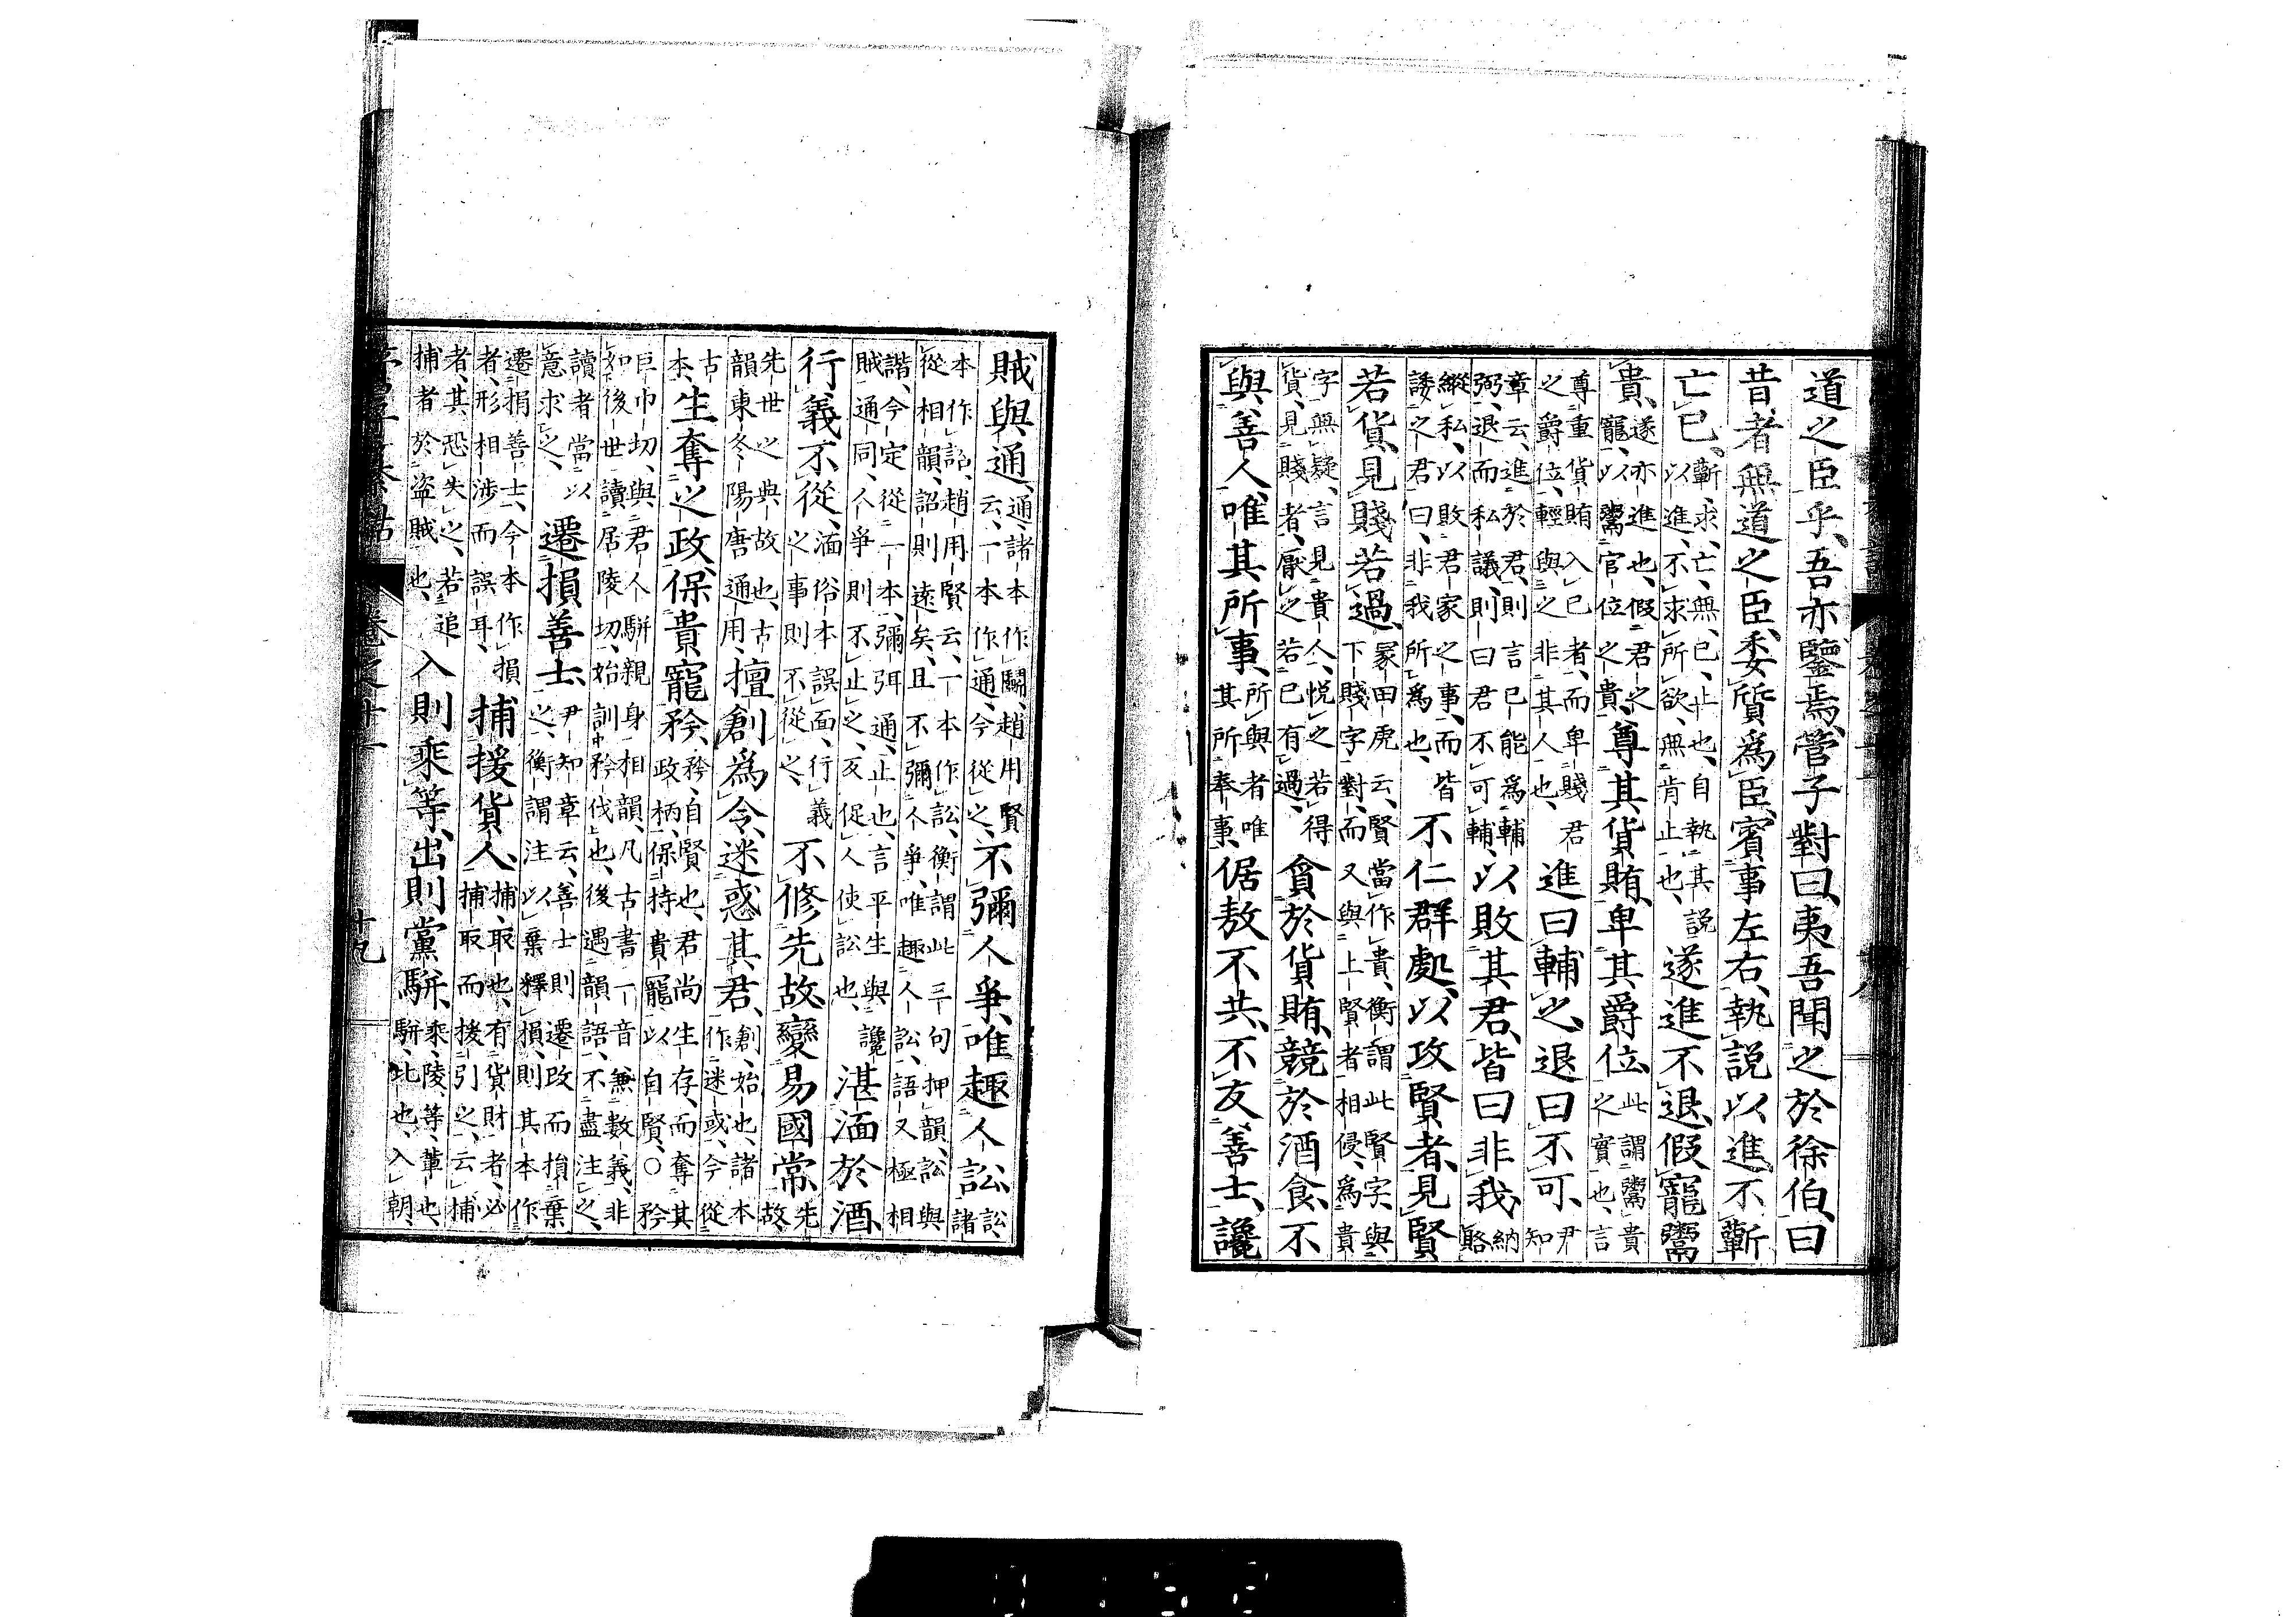 道之臣乎、吾亦鑒焉、管子對曰、夷吾聞之於徐伯、曰
昔者無道之臣、委質爲臣、賓事左右、執說以進、不蘄
亡已、蘄、求、亡、無、已、止也、自執其說以進、不求所欲、無肯止也、遂進不退、假寵鬻
貴、遂亦進也、假君之寵、以鬻官位之貴、尊其貨賄、卑其爵位、此謂鬻貴之實也、言
尊重貨賄入已者、而卑賤君之爵位、輕與之非其人也、進曰輔之、退曰不可、尹知
章云、進於君、則言已能爲輔弼、退而私議、則曰君不可輔、以敗其君、皆曰非我、納賂
縱私、以敗君家之事、而皆諉之君曰、非我所爲也、不仁群處、以攻賢者、見賢
若貨、見賤若過、冢田虎云、賢當作貴、衡謂此賢字、與下賤字對、而又與上賢者相侵、爲貴
字無疑、言見貴人、悦之若得貨、見賤者、厭之若已有過、貪於貨賄、競於酒食、不
與善人、唯其所事、所與者唯其所奉事、倨敖不共、不友善士、讒
賊與通、通、諸本作鬭、趙用賢云、一本作通、今從之、不彌人爭、唯趣人訟、訟諸
本作詔、趙用賢云、一本作訟、衡謂此三句押韻、訟與從相韻、詔則遠矣、且不彌人爭、唯趣人訟、語又極相
諧、今定從一本、彌弭通、止也、言平生與讒賊通同、人爭則不止之、反促人使訟也、湛湎於酒、
行義不從、湎、俗本誤面、行義之事則不從之、不修先故、變易國常、先故、
先世之典故也、古韻東冬陽唐通用、擅創爲令、迷惑其君、創、始也、諸本作迷或、今從
古本、生奪之政、保貴寵矜、矜、自賢也、君尚生存、而奪其政柄、保持貴寵、以自賢、○矜
巨巾切、與君人駢親身相韻、凡古書一音兼數義、非如後世讀居陵切、始訓矜伐也、後遇韻語、不盡注之、
讀者當以意求之、遷損善士、尹知章云、善士則遷改而損棄之、衡謂注以棄釋損、則其本作
遷捐善士、今本作損者、形相涉而誤耳、捕援貨人、捕、取也、有貨財者、必捕取而援引之、云捕
者、其恐失之、若追捕者於盗賊也、入則乘等、出則黨駢、乘、陵、等、輩也、駢、比也、入朝、
卷之十一 十九